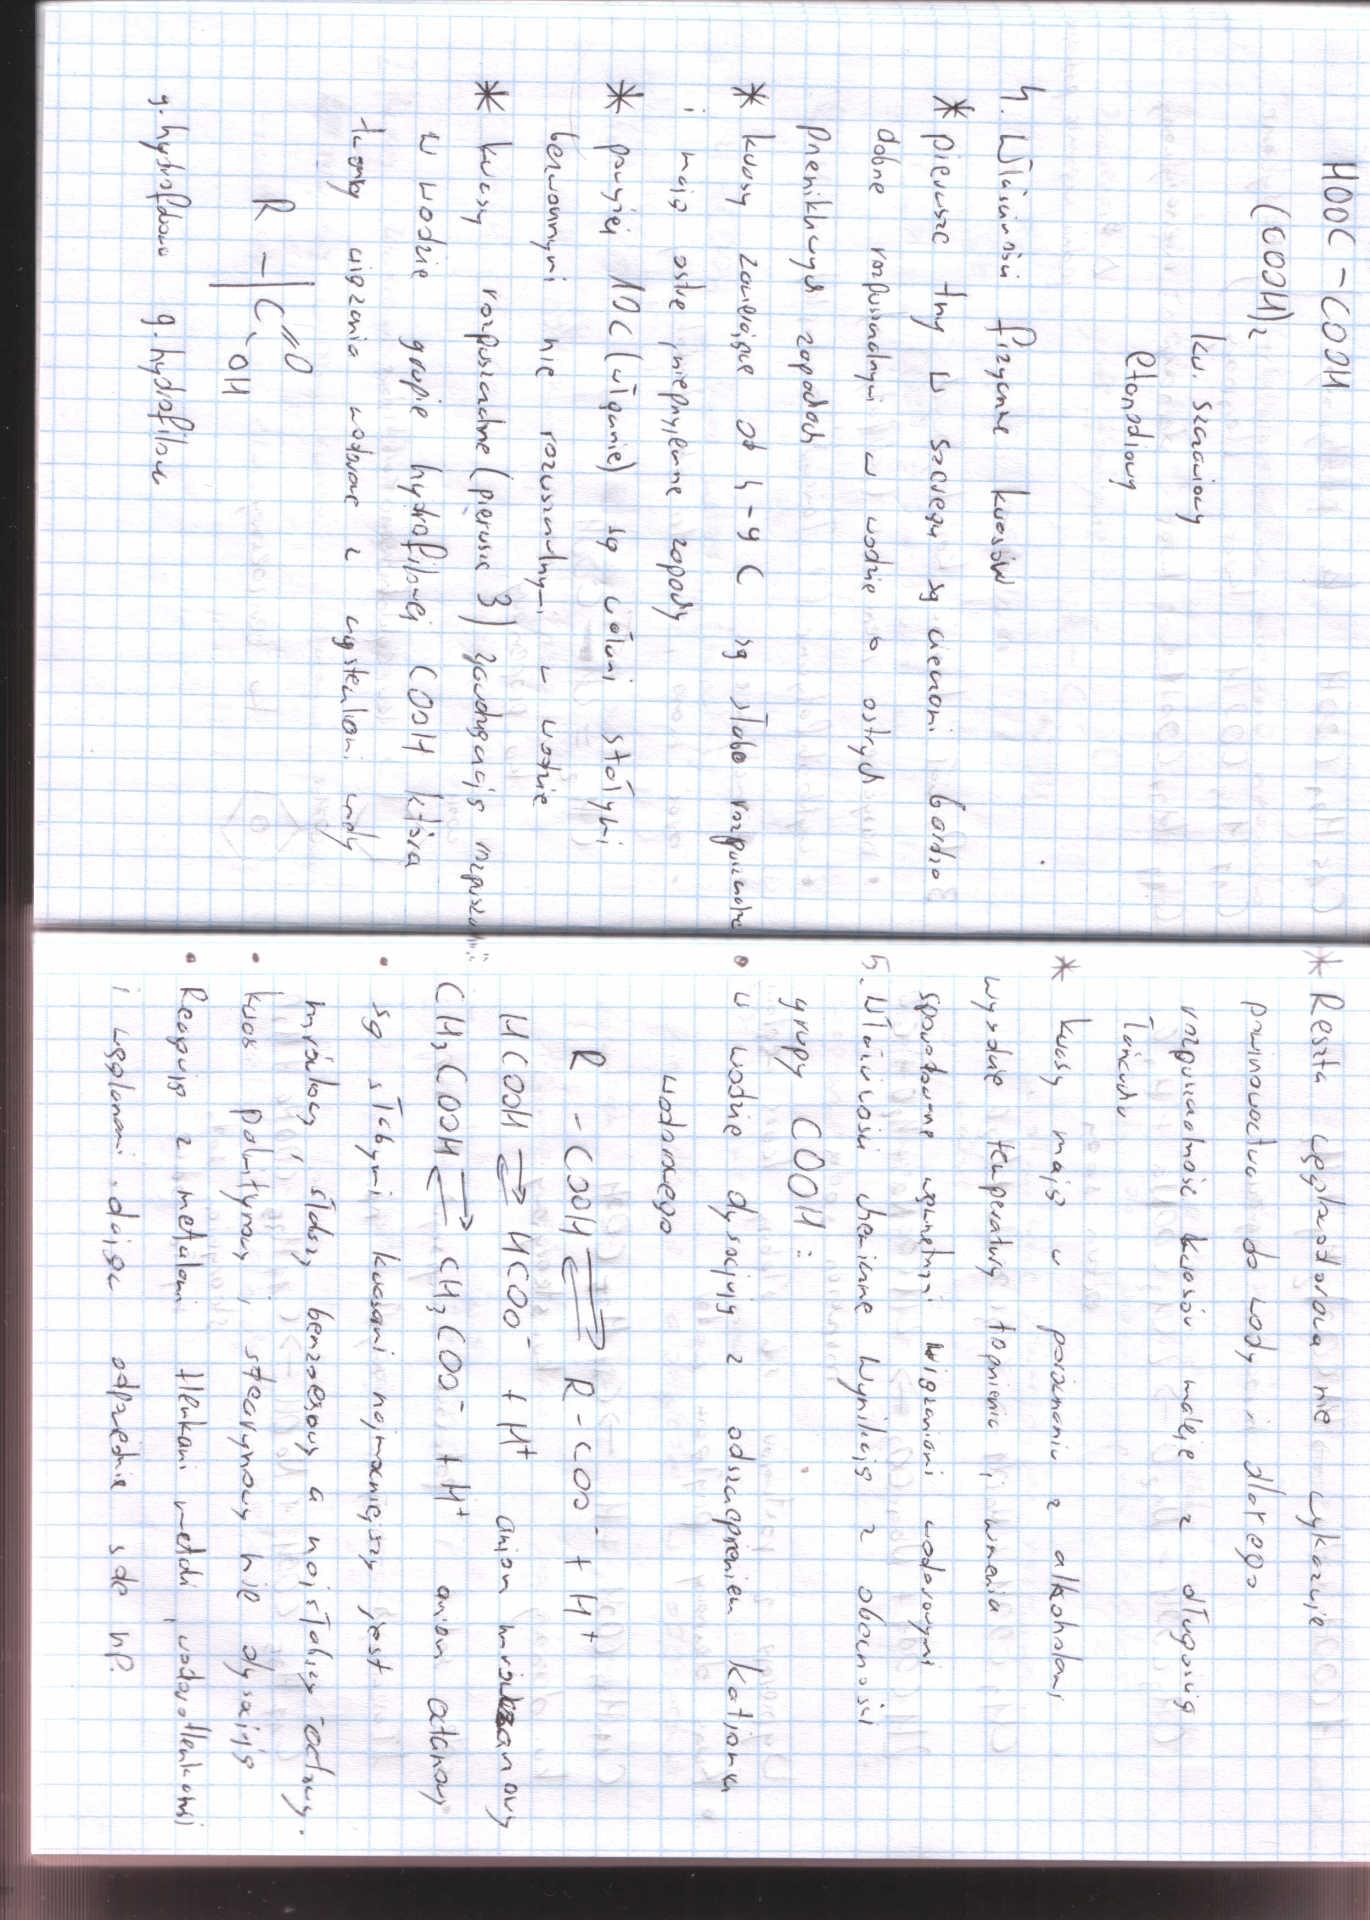 HOOC-COOH
(COOH)2
kw. szczawiowy
etanodiowy
4. Właściwości fizyczne kwasów
* pierwsze trzy w szeregu są cieczami bardzo
dobrze rozpuszczalnymi w wodzie o ostrych
przenikliwych zapachach
* kwasy zawierające od 4-9 C są słabo rozpuszczalne
i mają ostre nieprzyjemne zapachy
* powyżej 10C (włącznie) są ciałami stałymi
bezwonnymi nie rozpuszczalnymi w wodzie
* kwasy rozpuszczalne (pierwsze 3) zawdzięczają
w wodzie grupie hydrofilowej COOH która
tworzy wiązania wodorowe z cząsteczkami wody
R-|C=O
OH
g. hydrofobowa g. hydrofilowa
* Reszta węglowodorowa nie wykazuje
powinowactwa do wody i dlatego
rozpuszczalność kwasów maleje z długością
łańcucha
* kwasy mają w porównaniu z alkoholami
wysokie temperatury topnienia i wrzenia
spowodowane wiązaniami wodorowymi
5. Właściwości chemiczne wynikają z obecności
grupy COOH:
• w wodzie dysocjują z odszczepieniem kationu
wodorowego
R-COOH ⇌ R-COO- + H+
HCOOH ⇌ HCOO- + H+ anion mrówczanowy
CH3COOH ⇌ CH3COO- + H+ anion octanowy
• są słabymi kwasami najmocniejszy jest
mrówkowy, słabszy benzoesowy a najsłabszy octowy.
• kwas palmitynowy i stearynowy nie dysocjują
• Reagują z metalami tlenkami metali, wodorotlenkami
i węglanami dając odpowiednie sole np.